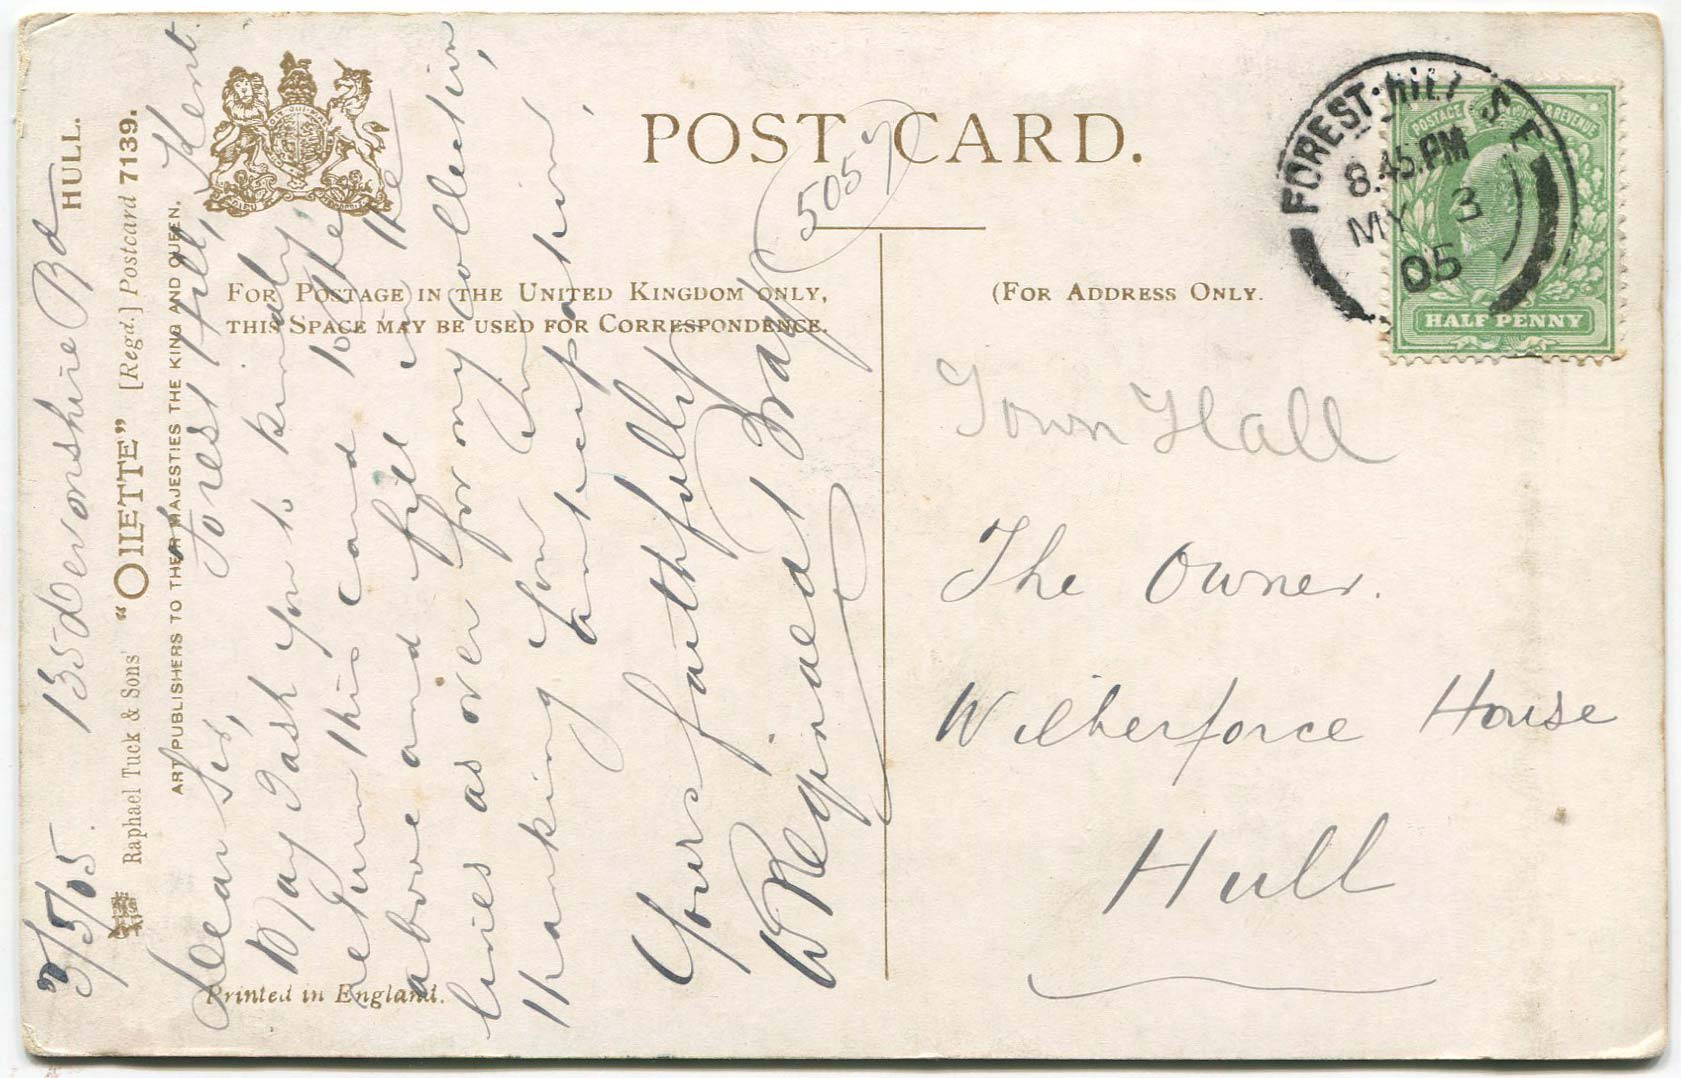 POST CARD.
FOR POSTAGE IN THE UNITED KINGDOM ONLY,
THIS SPACE MAY BE USED FOR CORRESPONDENCE.
(FOR ADDRESS ONLY.
HULL.
Raphael Tuck & Sons' "OILETTE" [Regd.] Postcard 7139.
ART PUBLISHERS TO THEIR MAJESTIES THE KING AND QUEEN.
Printed in England.
3/5/05. 135 Devonshire Rd
Forest Hill, Kent.
Dear Sir,
May I ask you to kindly
return this card to the
above and fill in the
lines as over for my collection,
Thanking you in
anticipation,
Yours faithfully
W Reginald Bray
5057
FOREST HILL S.E
8.45.PM
MY 3
05
POSTAGE & REVENUE
HALF PENNY
Town Hall
The Owner.
Wilberforce House
Hull